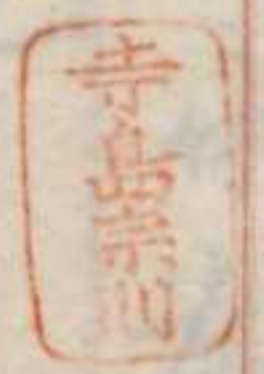 寺島宗則